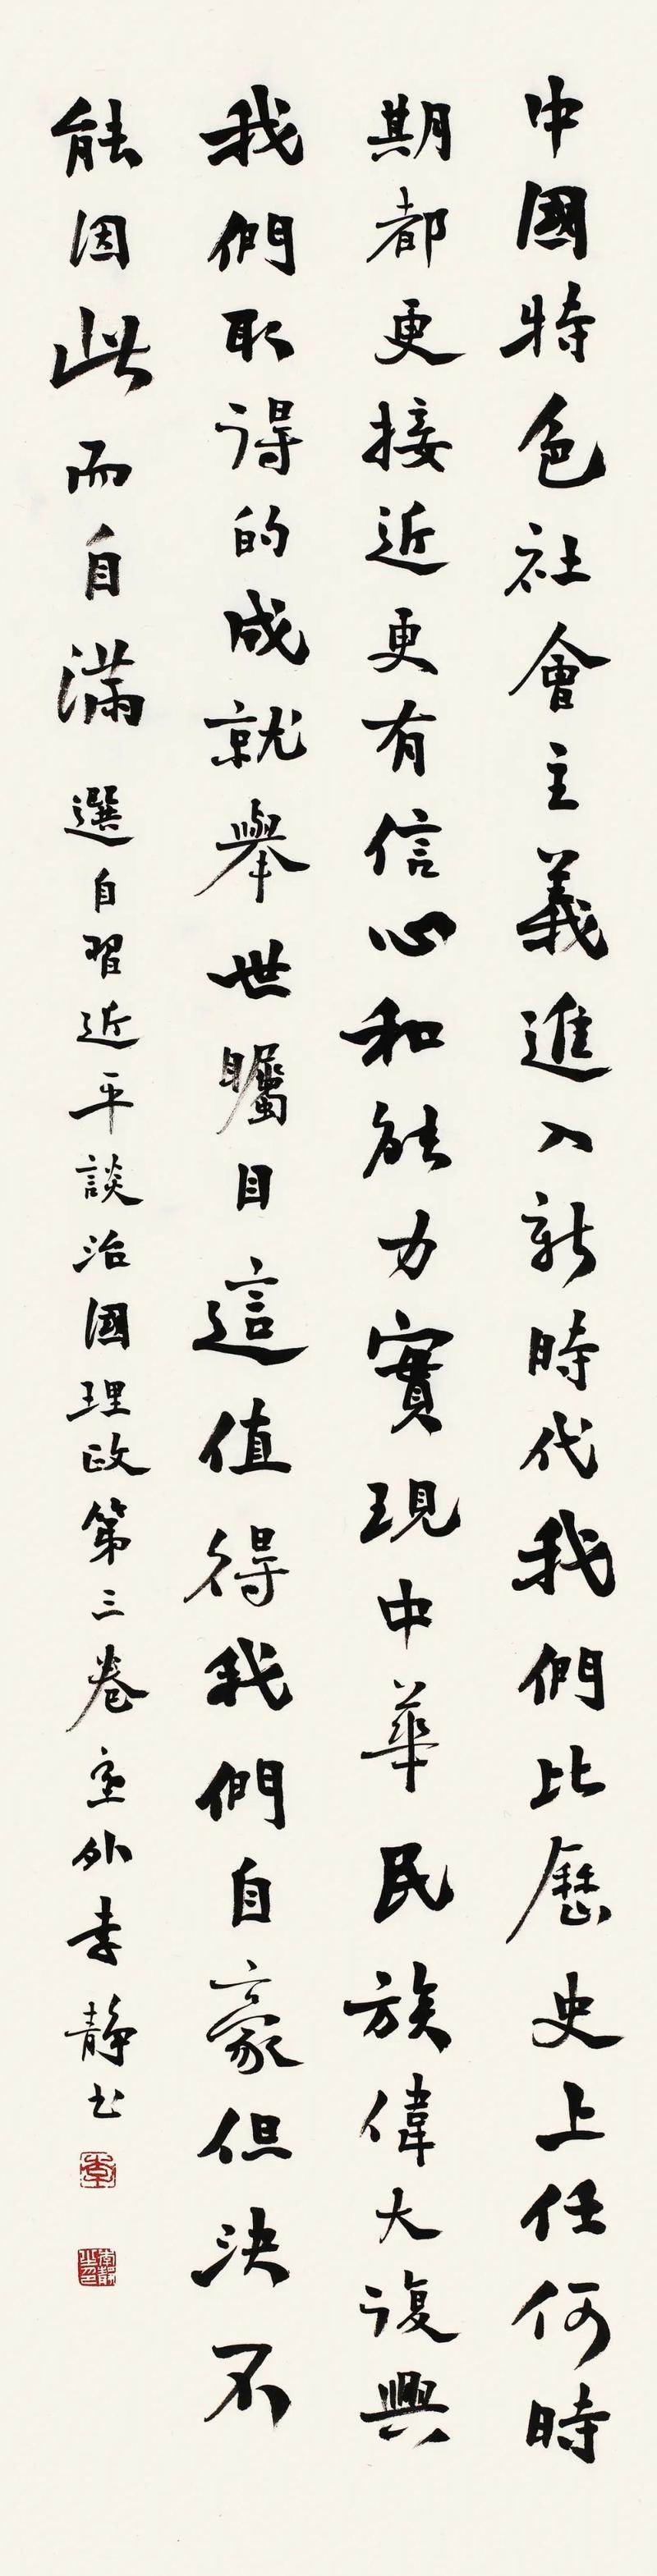 中國特色社會主義進入新時代我們比歷史上任何時
期都更接近更有信心和能力實現中華民族偉大復興
我們取得的成就舉世矚目這值得我們自豪但決不
能因此而自滿 選自習近平談治國理政第三卷 塞外李靜書
李
李靜之印